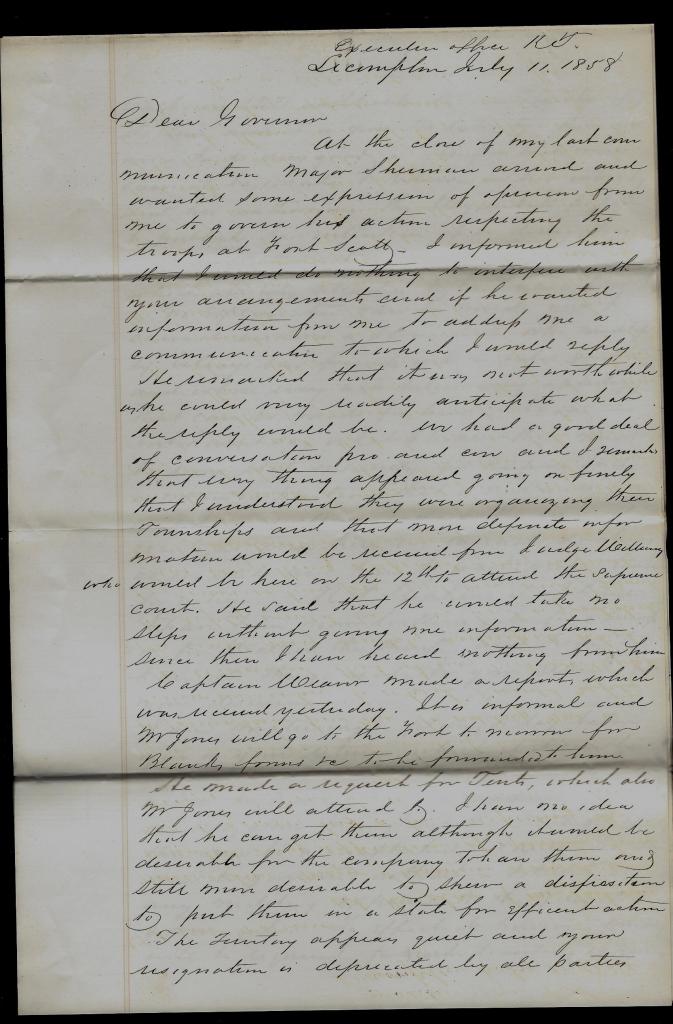 Executive office K.T.
Lecompton July 11. 1858
Dear Governor
At the close of my last com
munication Major Sherman arrived and
wanted some expression of opinion from
me to govern his action respecting the
troops at Fort Scott – I informed him
that I would do nothing to interfere with
your arrangements and if he wanted
information from me to address me a
communication to which I would reply
He remarked that it was not worth while
as he could very readily anticipate what
the reply would be. We had a good deal
of conversation pro and con and I remarked
that every thing appeared going on finely
that I understood they were organizing their
Townships and that more definite infor
mation would be received from Judge Williams
who would be here on the 12th to attend the supreme
court. He said that he would take no
steps without giving me information –
since then I have heard nothing from him
Captain Weaver made a report, which
was received yesterday. It is informal and
Mr Jones will go to the Fort to morrow for
Blanks forms &c to be forwarded to him
He made a request for Tents, which also
Mr Jones will attend to. I have no idea
that he can get them although it would be
desirable for the company to have them and
still more desirable to shew a disposition
to put them in a state for efficient action
The Territory appears quiet and your
resignation is deprecated by all parties